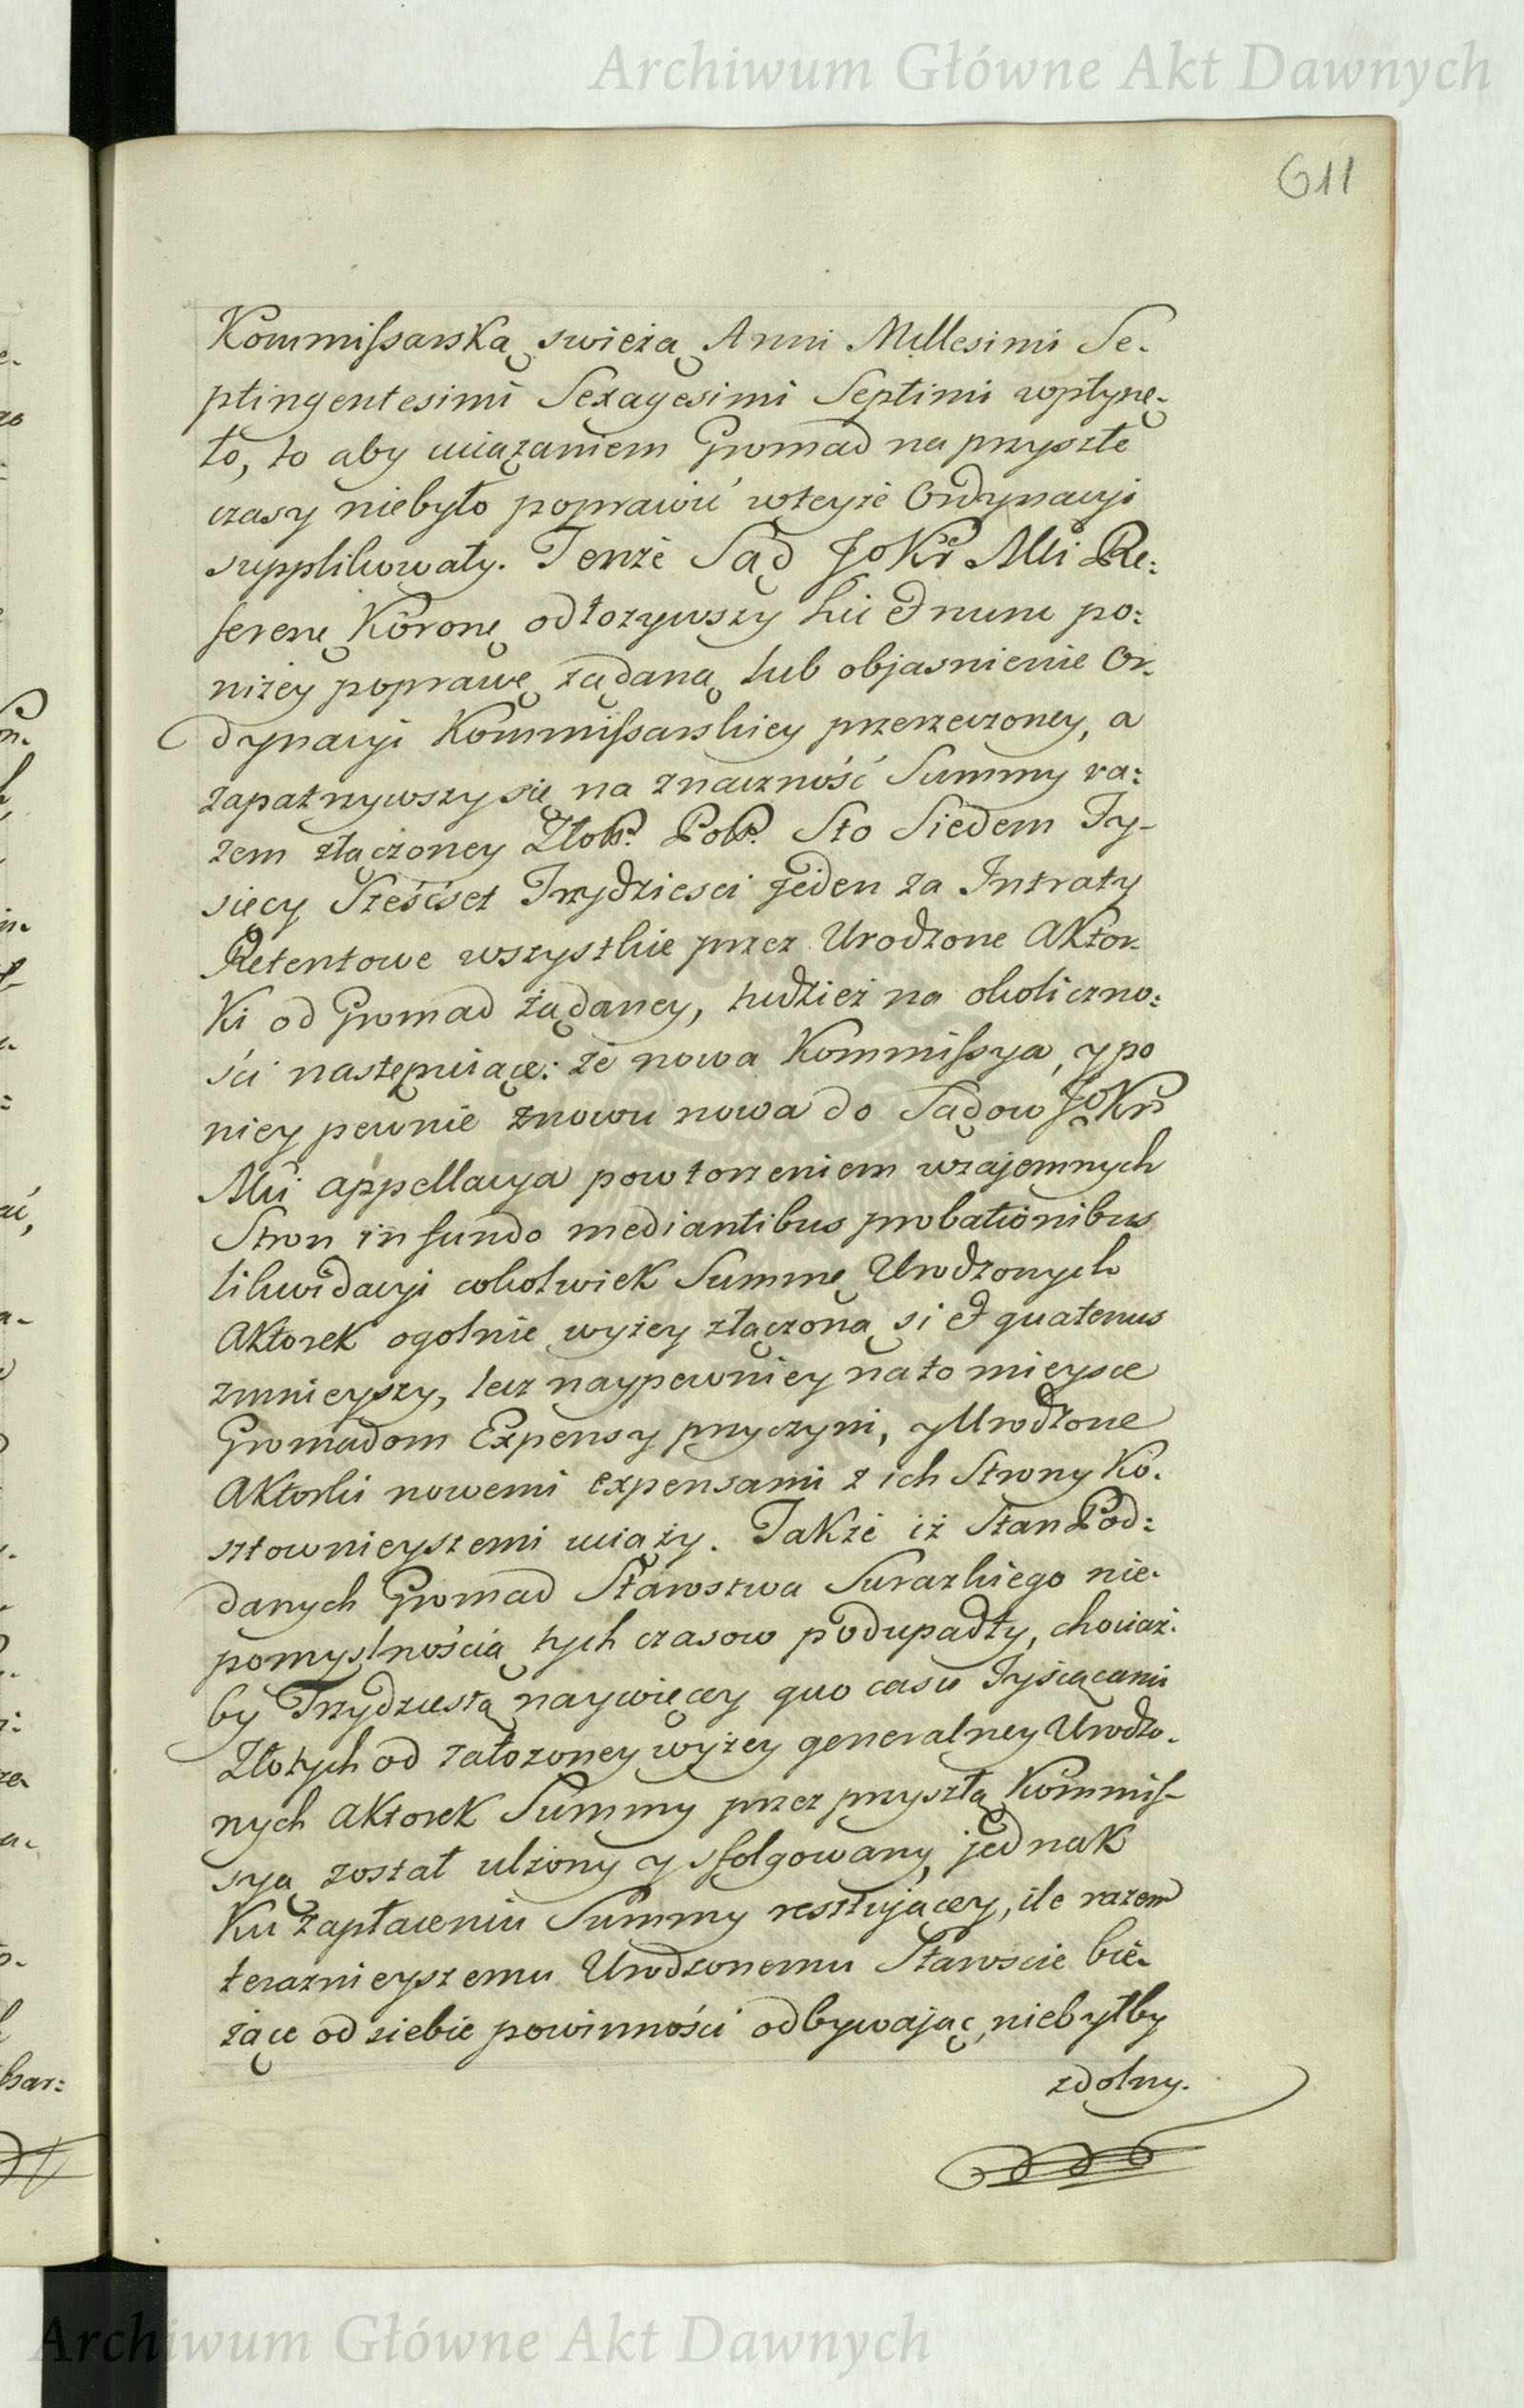 Archiwum Główne Akt Dawnych
611
Kommissarską swieżą Anni Millesimi Se-
ptingentesimi Sexagesimi Septimi wpłynę-
ło, to aby uciążaniem Gromad na przyszłe
czasy niebyło poprawić wteyże Ordynacyi
supplikowały. Tenże Sąd JoKr Mci Re:
feren: Koronę odłożywszy hic et nunc po:
niżey poprawę żądaną lub objasnienie Or-
dynacyi Kommissarskiey przerzeczoney, a
zapatrzywszy się na znaczność Summy ra:
zem złączoney Złotr. Polr. Sto Siedem Ty-
sięcy Sześćset Trzydziesci jeden za Intraty
Retentowe wszystkie przez Urodzone Aktor-
ki od Gromad żądaney, tudzież na okoliczno:
ści następuiące: że nowa Kommissya, y po
niey pewnie znowu nowa do Sądow JoKr
Mci appellacya powtorzeniem wzajemnych
Stron in fundo mediantibus probationibus
likwidacyi cokolwiek Summę Urodzonych
Aktorek ogolnie wyżey złączoną si et quatenus
zmnieyszy, lecz naypewniey na to mieysce
Gromadom Expensy przyczyni, y Urodzone
Aktorki nowemi expensami z ich Strony ko-
sztownieyszemi uciąży. Także iż Stan Pod:
danych Gromad Starostwa Surazkiego nie-
pomyslnością tych czasow podupadły, chociaż-
by Trzydziestą naywięcey quo casu Tysiącami
Złotych od założoney wyżey generalney Urodzo-
nych Aktorek Summy przez przyszłą Kommis-
syą został ulżony y sfolgowany, jednak
ku zapłaceniu Summy resztującey, ile razem
teraznieyszemu Urodzonemu Staroscie bie-
żące od siebie powinności odbywając, niebyłby
zdolny.
Archiwum Główne Akt Dawnych